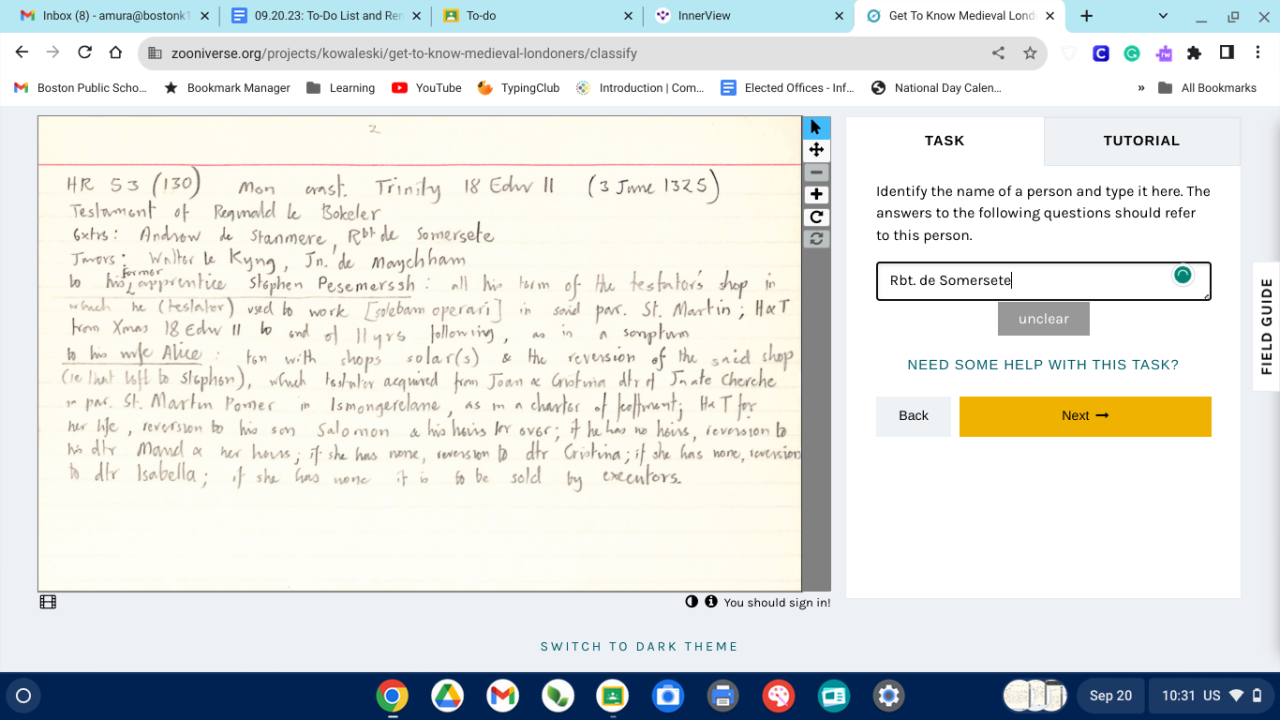 Inbox (8) - amura@bostonk1
09.20.23: To-Do List and Rem
To-do
InnerView
Get To Know Medieval Lond
zooniverse.org/projects/kowaleski/get-to-know-medieval-londoners/classify
Boston Public Scho...
Bookmark Manager
Learning
YouTube
TypingClub
Introduction | Com...
Elected Offices - Inf...
National Day Calen...
»
All Bookmarks
2
HR 53 (130) Mon crast. Trinity 18 Edw II (3 June 1325)
Testament of Reginald le Bokeler
Extrs: Andrew de Stanmere, Rbt de Somersete
Jurors: Walter le Kyng, Jn. de Maychham
to his former apprentice Stephen Pesemerssh: all his term of the testator's shop in
which he (testator) used to work [solebam operari] in said par. St. Martin; H&T
from Xmas 18 Edw II to end of 11 yrs following, as in a scriptum
to his wife Alice: ten with shops solar(s) & the reversion of the said shop
(ie that left to Stephen), which testator acquired from Joan & Cristina dtr of Jn atte Cherche
in par. St. Martin Pomer in Ismongerelane, as in a charter of feoffment; H&T for
her life, reversion to his son Salomon & his heirs for ever; if he has no heirs, reversion to
his dtr Maud & her heirs; if she has none, reversion to dtr Cristina; if she has none, reversion
to dtr Isabella; if she has none it is to be sold by executors.
You should sign in!
SWITCH TO DARK THEME
TASK
TUTORIAL
Identify the name of a person and type it here. The
answers to the following questions should refer
to this person.
Rbt. de Somersete
unclear
NEED SOME HELP WITH THIS TASK?
Back
Next
FIELD GUIDE
Sep 20
10:31 US